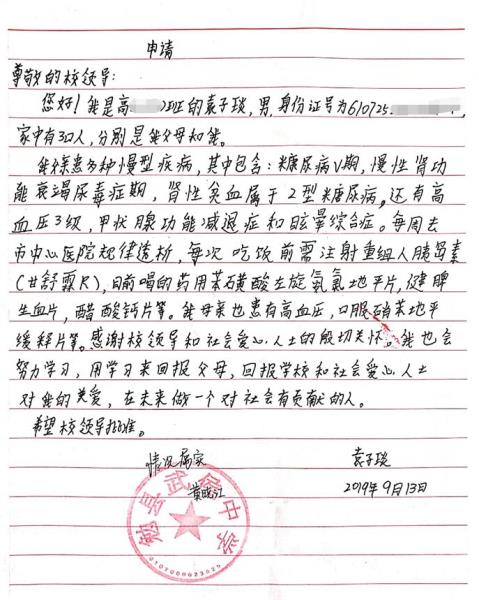 申请
尊敬的校领导：
您好！我是高 班的袁子琰，男，身份证号为610725
家中有3口人，分别是我父母和我。
我父亲患多种慢型疾病，其中包含：糖尿病V期，慢性肾功
能衰竭尿毒症期，肾性贫血属于2型糖尿病，还有高
血压3级，甲状腺功能减退症和眩晕综合症。每周去
市中心医院规律透析，每次吃饭前需注射重组人胰岛素
(甘舒霖R)，目前喝的药用苯磺酸左旋氨氯地平片，健脾
生血片，醋酸钙片等。我母亲也患有高血压，口服硝苯地平
缓释片等。感谢校领导和社会爱心人士的殷切关怀。我也会
努力学习，用学习来回报父母，回报学校和社会爱心人士
对我的关爱，在未来做一个对社会有贡献的人。
希望校领导批准。
情况属实
袁子琰
黄晓江
2019年9月13日
勉县武侯中学